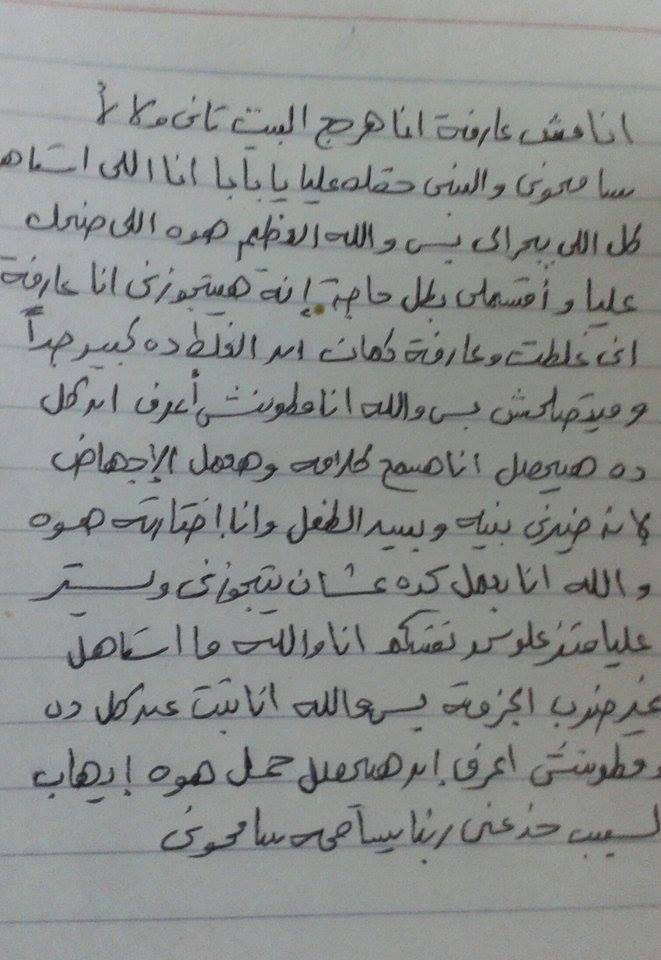 انا مش عارفة انا هرجع البيت تانى ولا لأ
سامحونى والنبى حقك عليا يا بابا انا اللى استاهـ
كل اللى بيجرالى بس والله العظيم هوه اللى ضحك
عليا وأقسملى بكل حاجة إنة هيتجوزنى انا عارفة
انى غلطت وعارفة كمان ان الغلط ده كبير جداً
وميتصلحش بس والله انا مكونتش أعرف ان كل
ده هيحصل انا هسمع كلامه وهعمل الإجهاض
لانه خيرنى بينه وبين الطفل وانا إختارته هوه
والله انا بعمل كده عشان يتجوزنى ويستر
عليا متزعلوش نفسكم انا والله ما استاهل
غير ضرب الجزمة بس والله انا تبت عن كل ده
ومكونتش اعرف إن هيحصل حمل هوه إيهاب
السبب غصب عنى ربنا يسامحه سامحونى